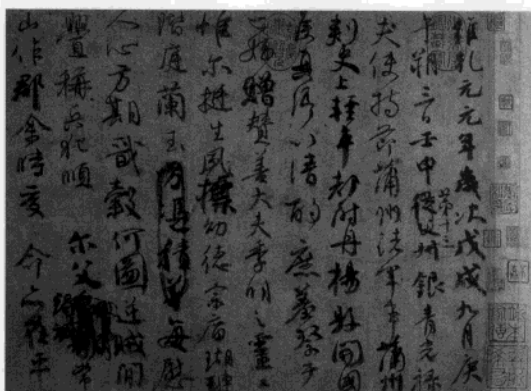 維乾元元年歲次戊戌九月庚
午朔三日壬申第十三從父銀青光祿
夫使持節蒲州諸軍事蒲州
刺史上輕車都尉丹楊縣開國
侯真卿以清酌庶羞祭于
亡姪贈贊善大夫季明之靈曰
惟爾挺生夙標幼德宗廟瑚璉
階庭蘭玉方憑積善每慰
人心方期戩穀何圖逆賊間
釁稱兵犯順 爾父 常
山作郡余時受 命亦在平